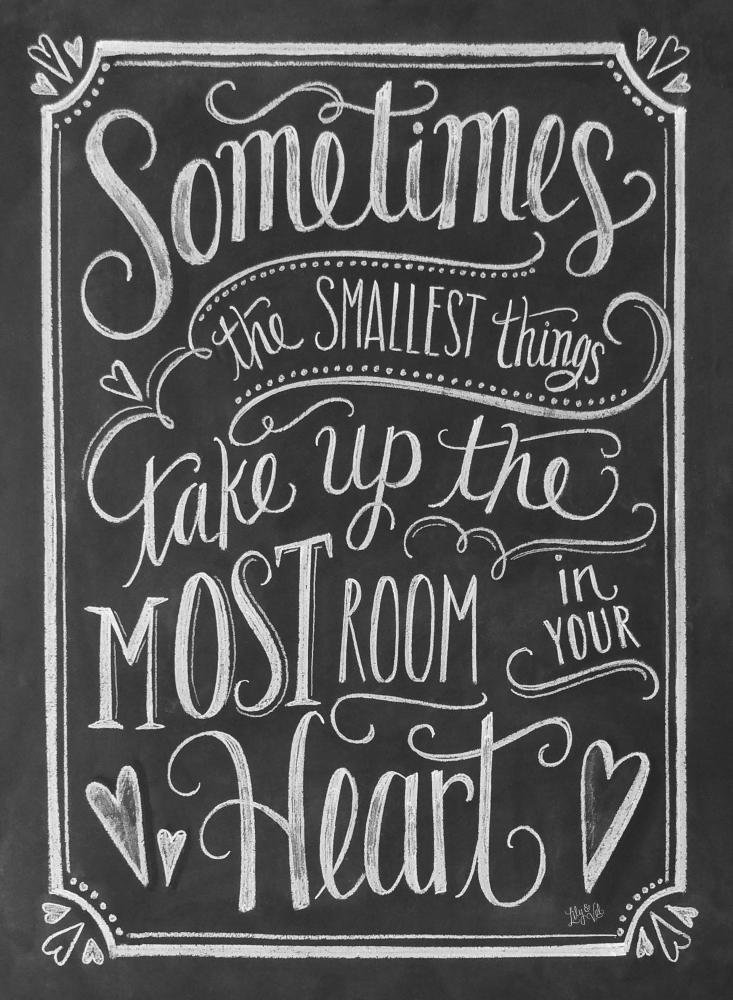 Sometimes
the SMALLEST things
take up the
MOST ROOM in
YOUR
Heart
Lily & Val